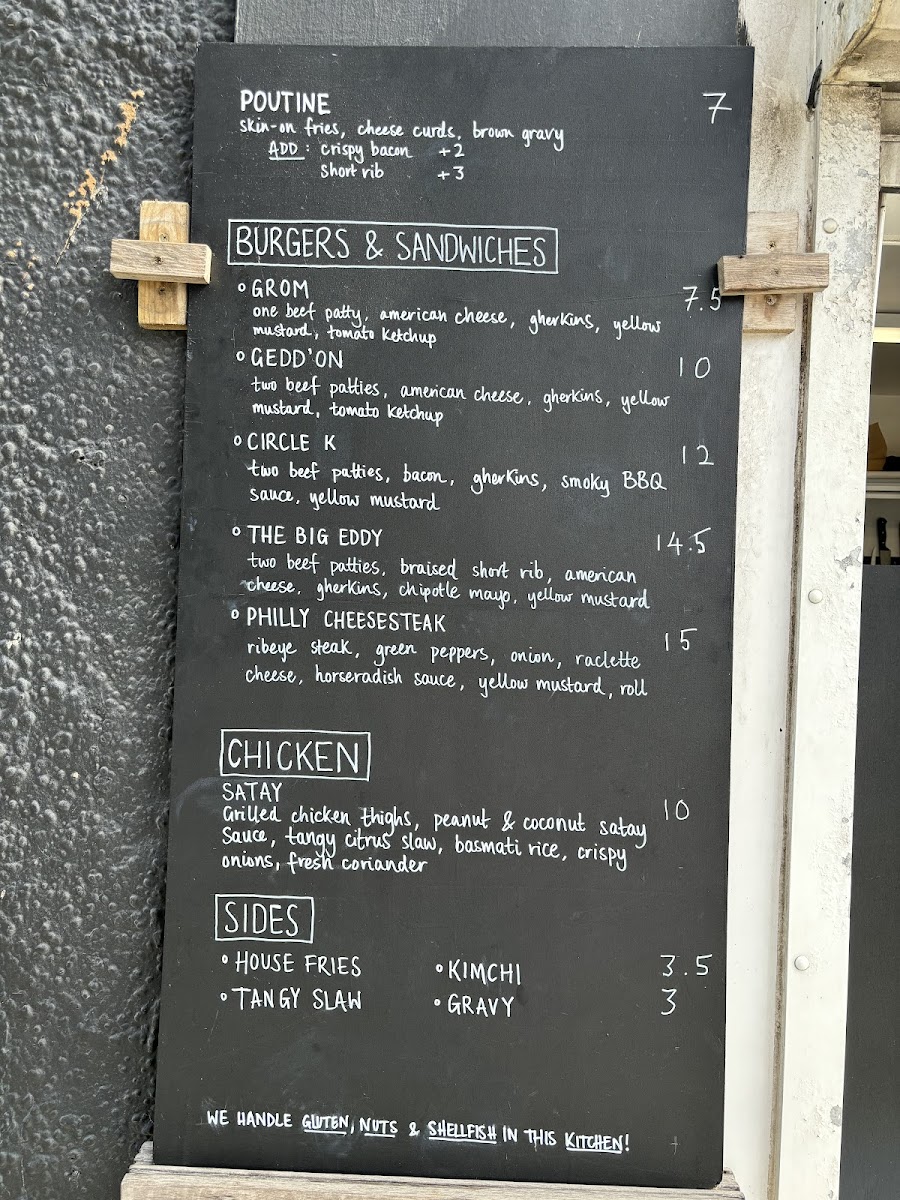 POUTINE 7
skin-on fries, cheese curds, brown gravy
ADD: crispy bacon +2
short rib +3
BURGERS & SANDWICHES
° GROM 7.5
one beef patty, american cheese, gherkins, yellow
mustard, tomato ketchup
° GEDD'ON 10
two beef patties, american cheese, gherkins, yellow
mustard, tomato ketchup
° CIRCLE K 12
two beef patties, bacon, gherkins, smoky BBQ
sauce, yellow mustard
° THE BIG EDDY 14.5
two beef patties, braised short rib, american
cheese, gherkins, chipotle mayo, yellow mustard
° PHILLY CHEESESTEAK 15
ribeye steak, green peppers, onion, raclette
cheese, horseradish sauce, yellow mustard, roll
CHICKEN
SATAY 10
Grilled chicken thighs, peanut & coconut satay
sauce, tangy citrus slaw, basmati rice, crispy
onions, fresh coriander
SIDES
° HOUSE FRIES ° KIMCHI 3.5
° TANGY SLAW ° GRAVY 3
WE HANDLE GLUTEN, NUTS & SHELLFISH IN THIS KITCHEN!